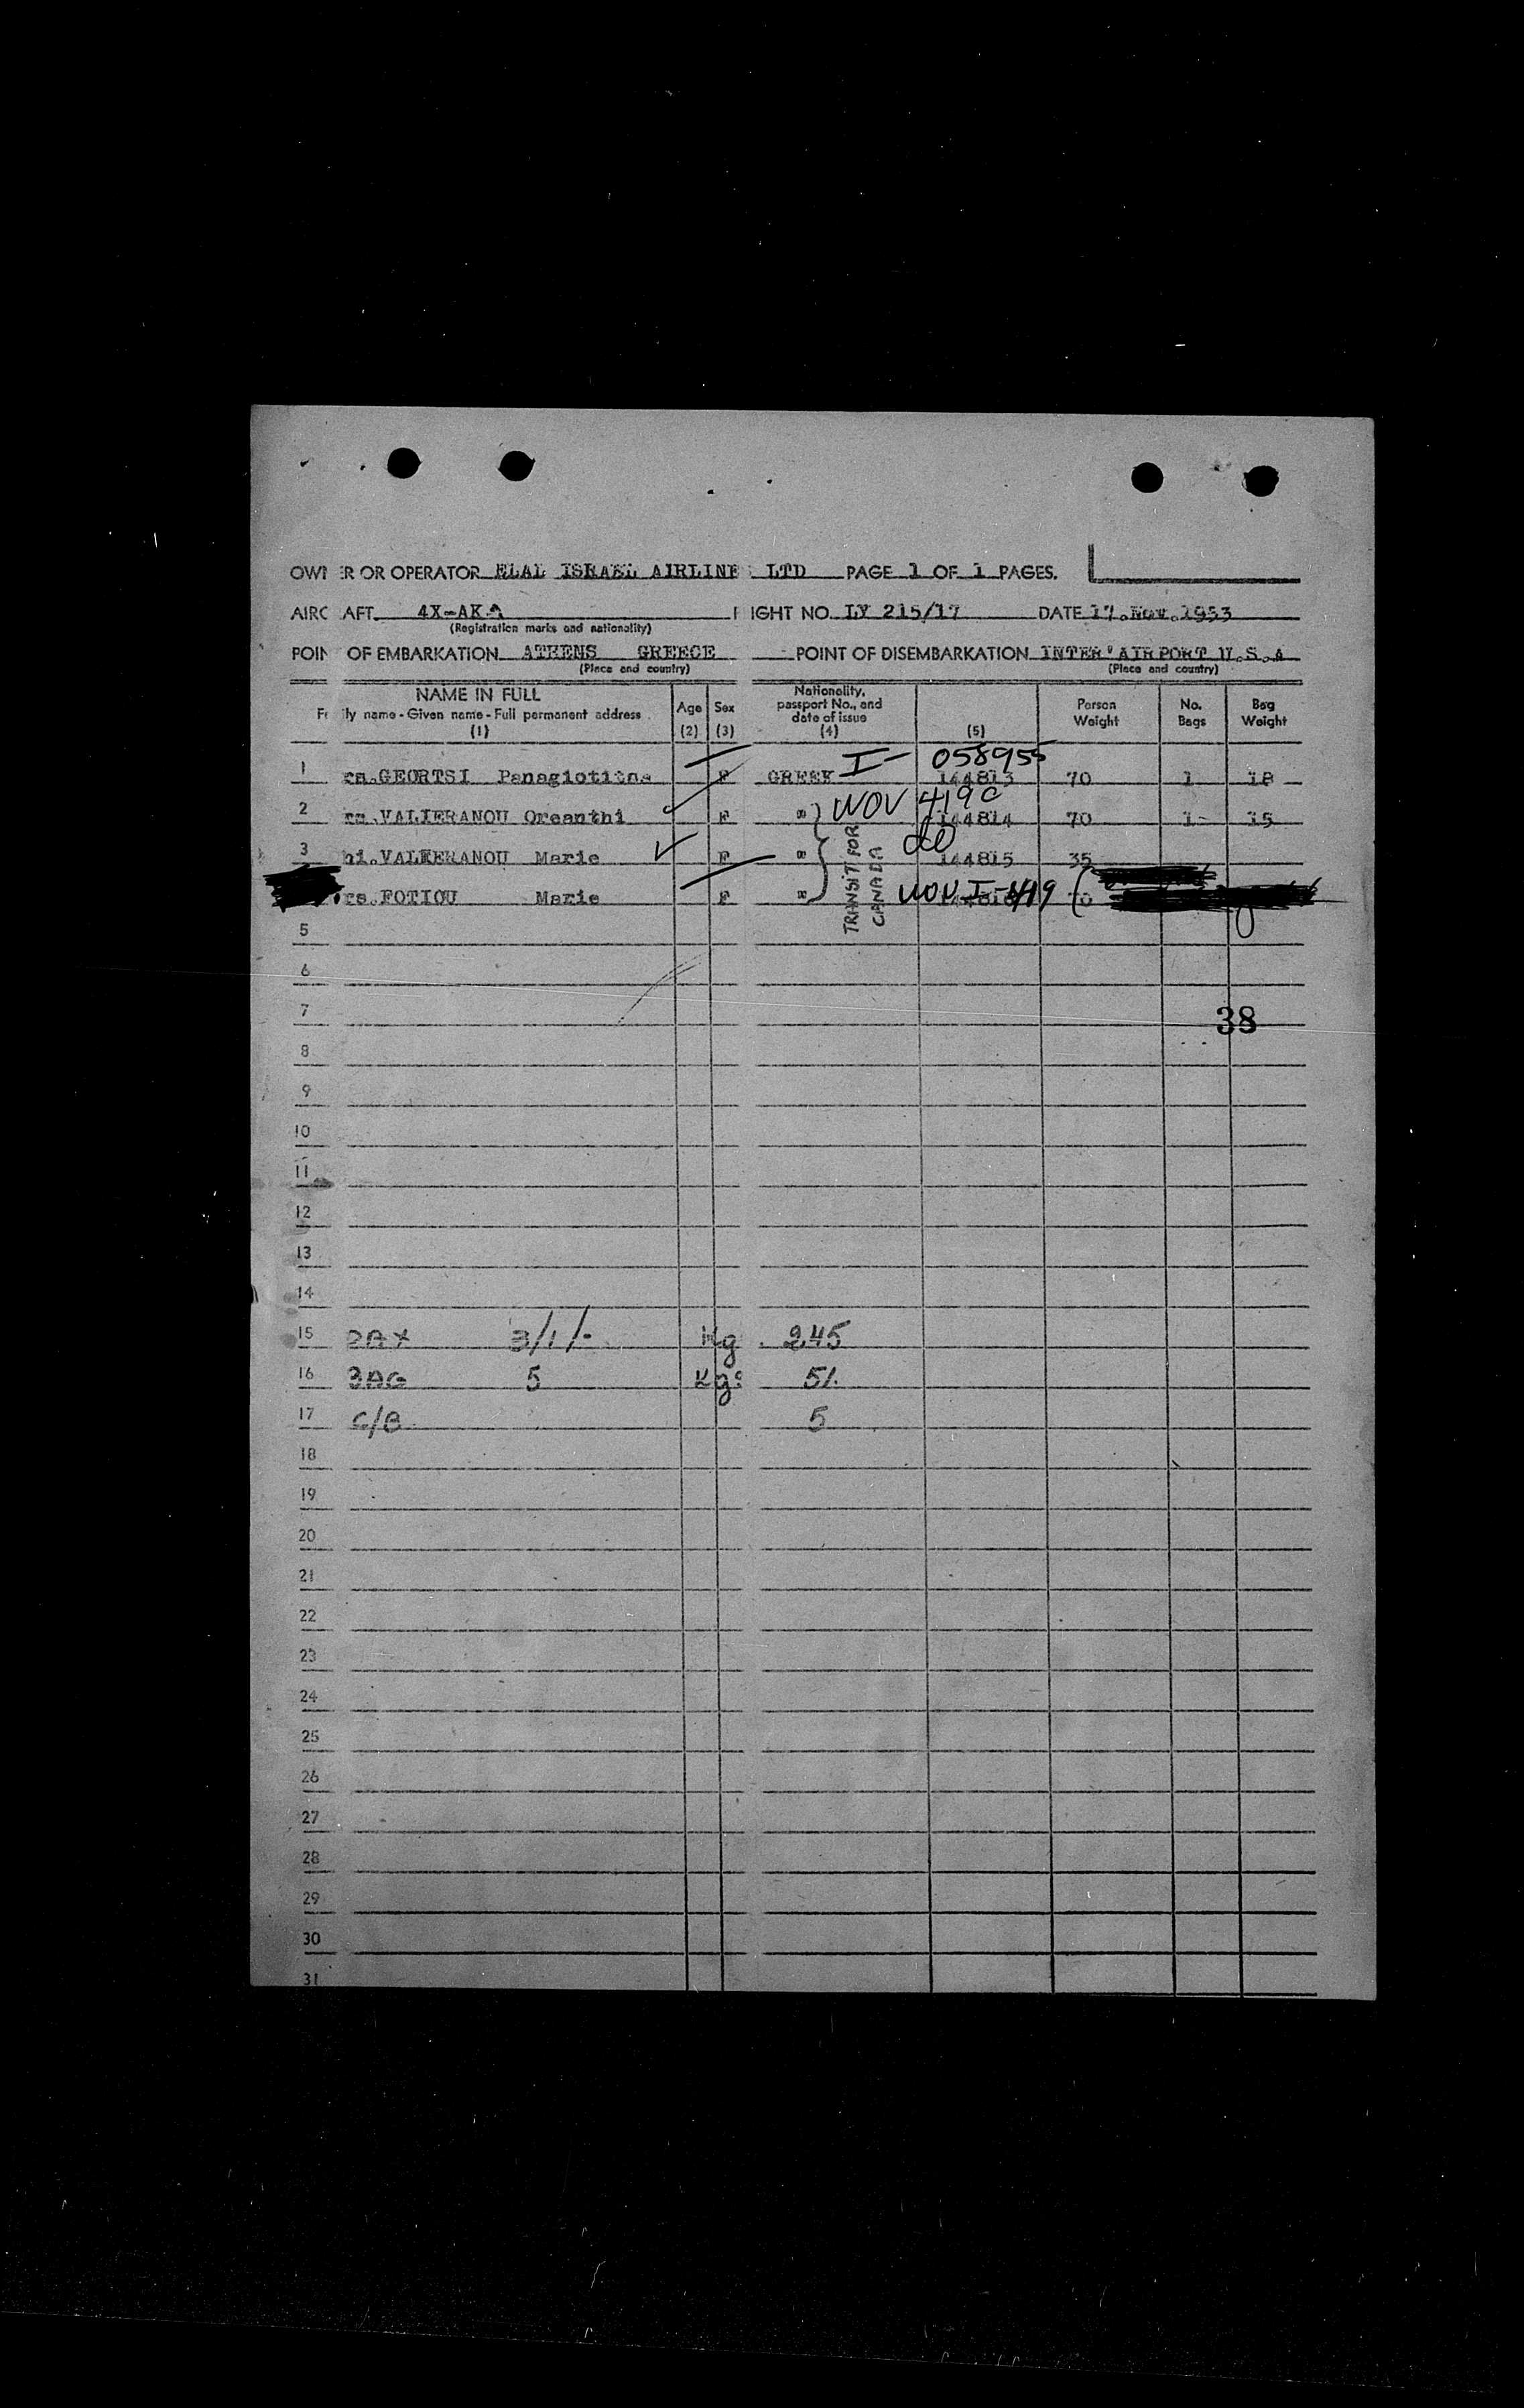 OWNER OR OPERATOR ELAL ISRAEL AIRLINE LTD PAGE 1 OF 1 PAGES.
AIRC AFT 4X-AKA IGHT NO. LY 215/17 DATE 17.Nov.1953
(Registration marks and nationality)
POIN OF EMBARKATION ATHENS GREECE POINT OF DISEMBARKATION INTER'AIRPORT U.S.A
(Place and country) (Place and country)
NAME IN FULL Age Sex Nationality, passport No., and date of issue Person Weight No. Bags Bag Weight
ly name - Given name - Full permanent address
(1) (2) (3) (4) (5)
I- 058955
1 rs.GEORTSI Panagiotitna F GREEK 144813 70 1 18
NOV 419C
2 rs.VALIERANOU Oreanthi F " 144814 70 1 15
do
3 hi.VALIERANOU Marie F " 144815 35
rs.FOTIOU Marie F " NOV I-419
TRANSIT FOR
CANADA
5
6
7 38
8
9
10
11
12
13
14
15 PAX 3/1/- Kg 245
16 BAG 5 Kgs 51
17 C/B 5
18
19
20
21
22
23
24
25
26
27
28
29
30
31